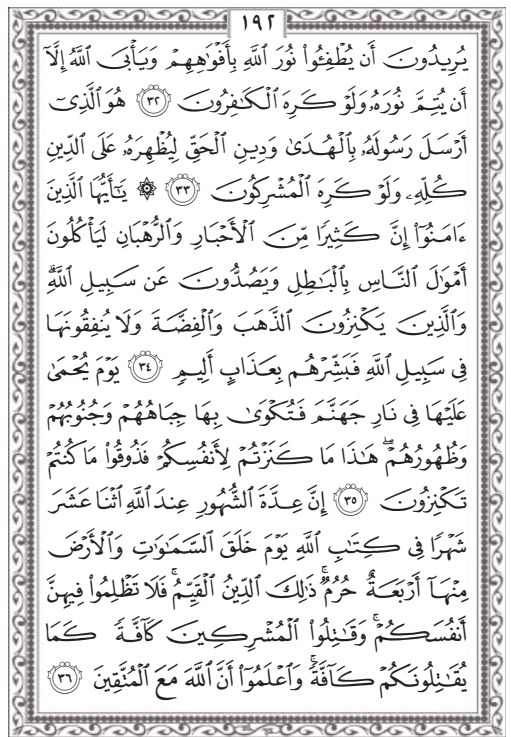 ١٩٢
يُرِيدُونَ أَن يُطْفِـُٔوا۟ نُورَ ٱللَّهِ بِأَفْوَٰهِهِمْ وَيَأْبَى ٱللَّهُ إِلَّآ
أَن يُتِمَّ نُورَهُۥ وَلَوْ كَرِهَ ٱلْكَـٰفِرُونَ ٣٢ هُوَ ٱلَّذِىٓ
أَرْسَلَ رَسُولَهُۥ بِٱلْهُدَىٰ وَدِينِ ٱلْحَقِّ لِيُظْهِرَهُۥ عَلَى ٱلدِّينِ
كُلِّهِۦ وَلَوْ كَرِهَ ٱلْمُشْرِكُونَ ٣٣ ۞ يَـٰٓأَيُّهَا ٱلَّذِينَ
ءَامَنُوٓا۟ إِنَّ كَثِيرًا مِّنَ ٱلْأَحْبَارِ وَٱلرُّهْبَانِ لَيَأْكُلُونَ
أَمْوَٰلَ ٱلنَّاسِ بِٱلْبَـٰطِلِ وَيَصُدُّونَ عَن سَبِيلِ ٱللَّهِ ۗ
وَٱلَّذِينَ يَكْنِزُونَ ٱلذَّهَبَ وَٱلْفِضَّةَ وَلَا يُنفِقُونَهَا
فِى سَبِيلِ ٱللَّهِ فَبَشِّرْهُم بِعَذَابٍ أَلِيمٍ ٣٤ يَوْمَ يُحْمَىٰ
عَلَيْهَا فِى نَارِ جَهَنَّمَ فَتُكْوَىٰ بِهَا جِبَاهُهُمْ وَجُنُوبُهُمْ
وَظُهُورُهُمْ ۖ هَـٰذَا مَا كَنَزْتُمْ لِأَنفُسِكُمْ فَذُوقُوا۟ مَا كُنتُمْ
تَكْنِزُونَ ٣٥ إِنَّ عِدَّةَ ٱلشُّهُورِ عِندَ ٱللَّهِ ٱثْنَا عَشَرَ
شَهْرًا فِى كِتَـٰبِ ٱللَّهِ يَوْمَ خَلَقَ ٱلسَّمَـٰوَٰتِ وَٱلْأَرْضَ
مِنْهَآ أَرْبَعَةٌ حُرُمٌ ۚ ذَٰلِكَ ٱلدِّينُ ٱلْقَيِّمُ ۚ فَلَا تَظْلِمُوا۟ فِيهِنَّ
أَنفُسَكُمْ ۚ وَقَـٰتِلُوا۟ ٱلْمُشْرِكِينَ كَآفَّةً كَمَا
يُقَـٰتِلُونَكُمْ كَآفَّةً ۚ وَٱعْلَمُوٓا۟ أَنَّ ٱللَّهَ مَعَ ٱلْمُتَّقِينَ ٣٦